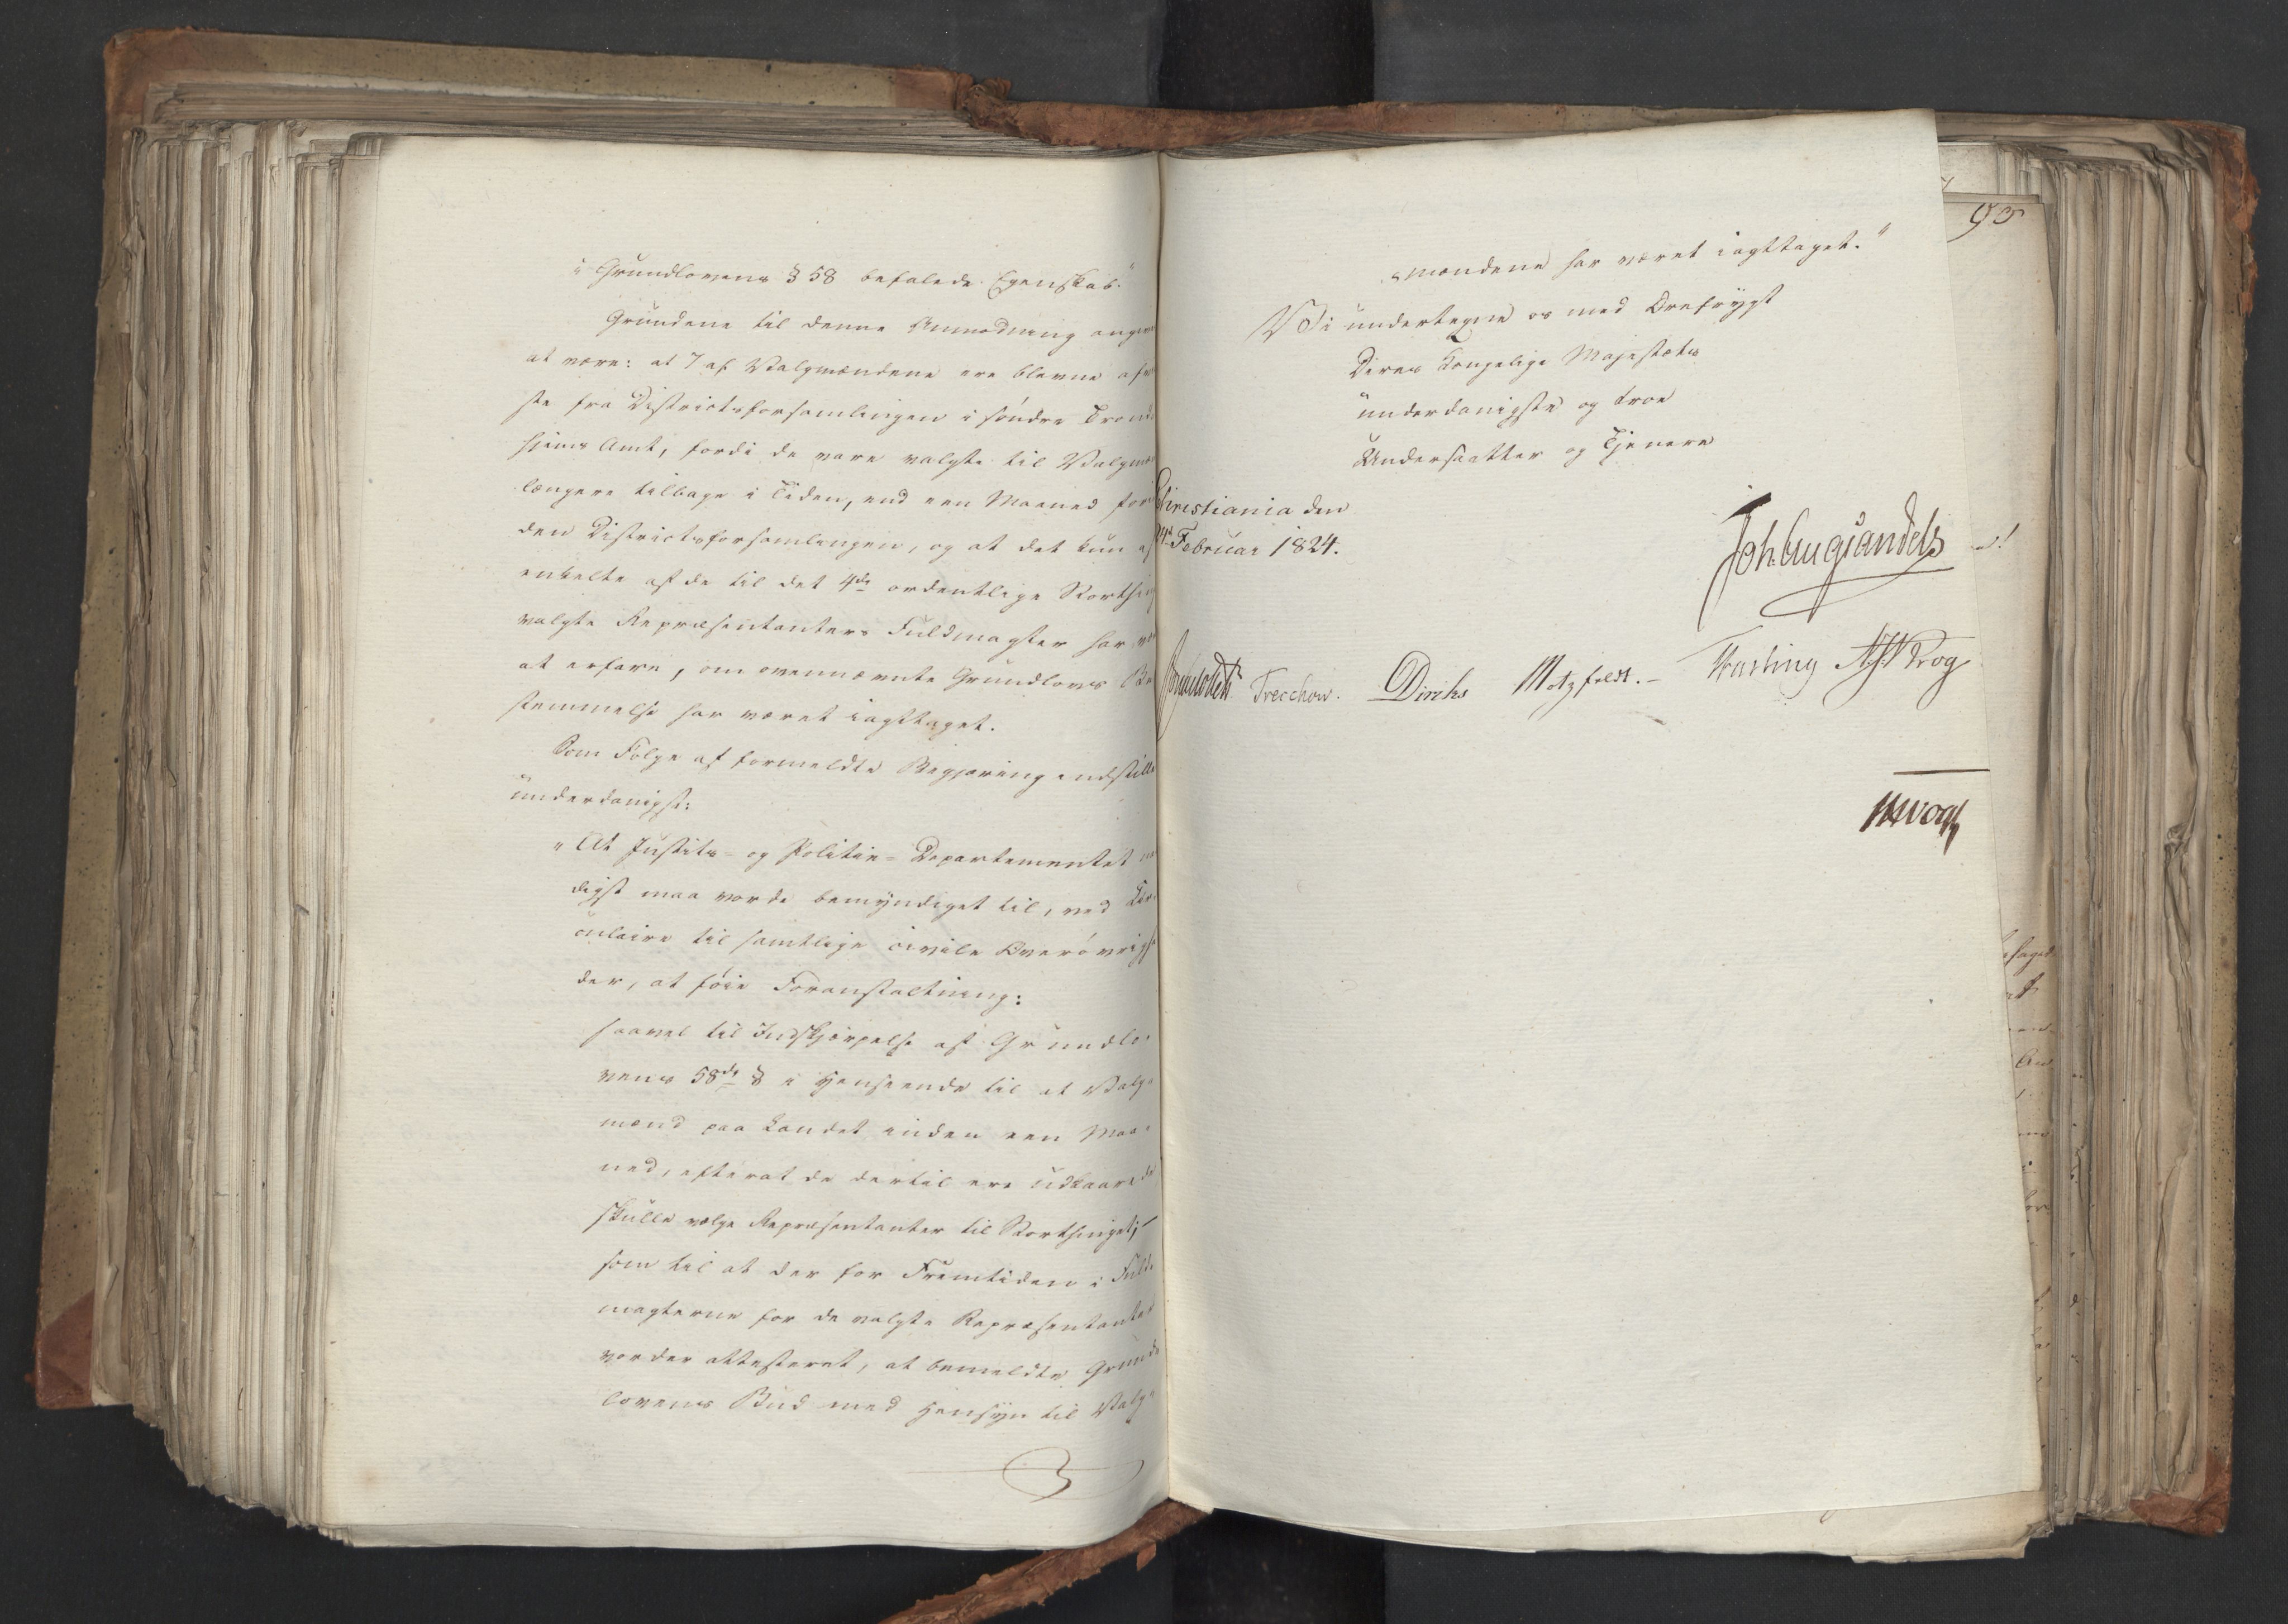 "Grundlovens § 58 befalede Egenskab."
Grundene til denne Anmodning angives
at være: at 7 af Valgmændene ere blevne afvi
ste fra Districtsforsamlingen i søndre Trond
hjems Amt, fordi de vare valgte til Valgmæ
længere tilbage i Tiden, end een Maaned for
den Districtsforsamlingen, og at det kun af
enkelte af de til det 4de ordentlige Storthing
valgte Repræsentanters Fuldmagter har væ
at erfare, om ovennævnte Grundlovs Be
stemmelse har været iagttaget.
Som Følge af formeldte Begjæring indstille
underdanigst:
"At Justits- og Politie-Departementet
digst maa vorde bemyndiget til, ved Cir-
culaire til samtlige civile Overøvrighe
der, at føie Foranstaltning:
saavel til Indskjærpelse af Grundlo-
vens 58de § i Henseende til at Valg-
mænd paa Landet inden een Maa-
ned, efterat de dertil ere udkaarede
skulle vælge Repræsentanter til Storthinget;
som til at der for Fremtiden i Fuld-
magterne for de valgte Repræsentanter
vorder attesteret, at bemeldte Grund-
lovens Bud med Hensyn til Valg-
95
"mændene har været iagttaget."
Vi undertegne os med Ærefrygt
Deres Kongelige Majestæts
underdanigste og troe
Undersaatter og Tjenere
Christiania den
24de Februar 1824.
Joh. Aug. Sandels
Sommerfeldt Treschow. Diriks Motzfeldt.- Fasting A. J. Krog
JHVogt